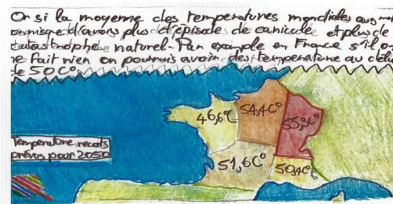 Or si la moyenne des températures mondiales aug
on risque d'avoir plus d'épisode de canicule et plus de
catastrophe naturel. Par exemple en France s'il on
ne fait rien on pourrais avoir des température au delà
de 50C°
46,6C°
54,4C°
55,3C°
51,6C°
50,4C°
Température records
prévus pour 2050